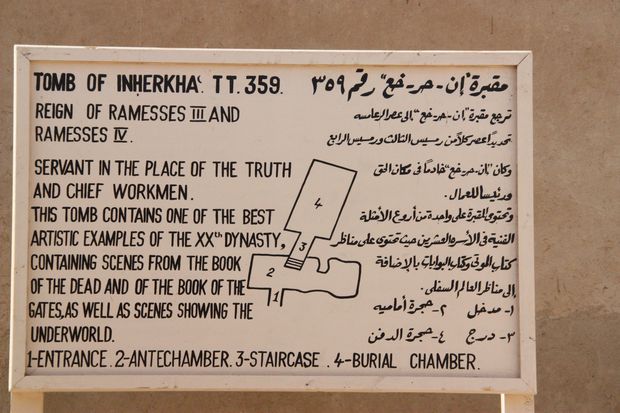 TOMB OF INHERKHAʿ. TT. 359.
REIGN OF RAMESSES III AND
RAMESSES IV.
SERVANT IN THE PLACE OF THE TRUTH
AND CHIEF WORKMEN.
THIS TOMB CONTAINS ONE OF THE BEST
ARTISTIC EXAMPLES OF THE XXth DYNASTY,
CONTAINING SCENES FROM THE BOOK
OF THE DEAD AND OF THE BOOK OF THE
GATES, AS WELL AS SCENES SHOWING THE
UNDERWORLD.
1-ENTRANCE. 2-ANTECHAMBER. 3-STAIRCASE. 4-BURIAL CHAMBER.
مقبرة "إن - حر - خع" رقم ٣٥٩
ترجع مقبرة "إن - حر - خع" إلى عصر الرعامسه
تحديداً عصر كلاً من رمسيس الثالث ورمسيس الرابع
وكان "إن - حر - خع" خادماً فى مكان الحق
ورئيساً للعمال.
وتحتوى المقبرة على واحدة من أروع الأمثلة
الفنية فى الأسره العشرين حيث تحتوى على مناظر
كتاب الموتى وكتاب البوابات بالإضافة
إلى مناظر العالم السفلى.
١- مدخل ٢- حجرة أماميه
٣- درج ٤- حجرة الدفن
4
3
2
1